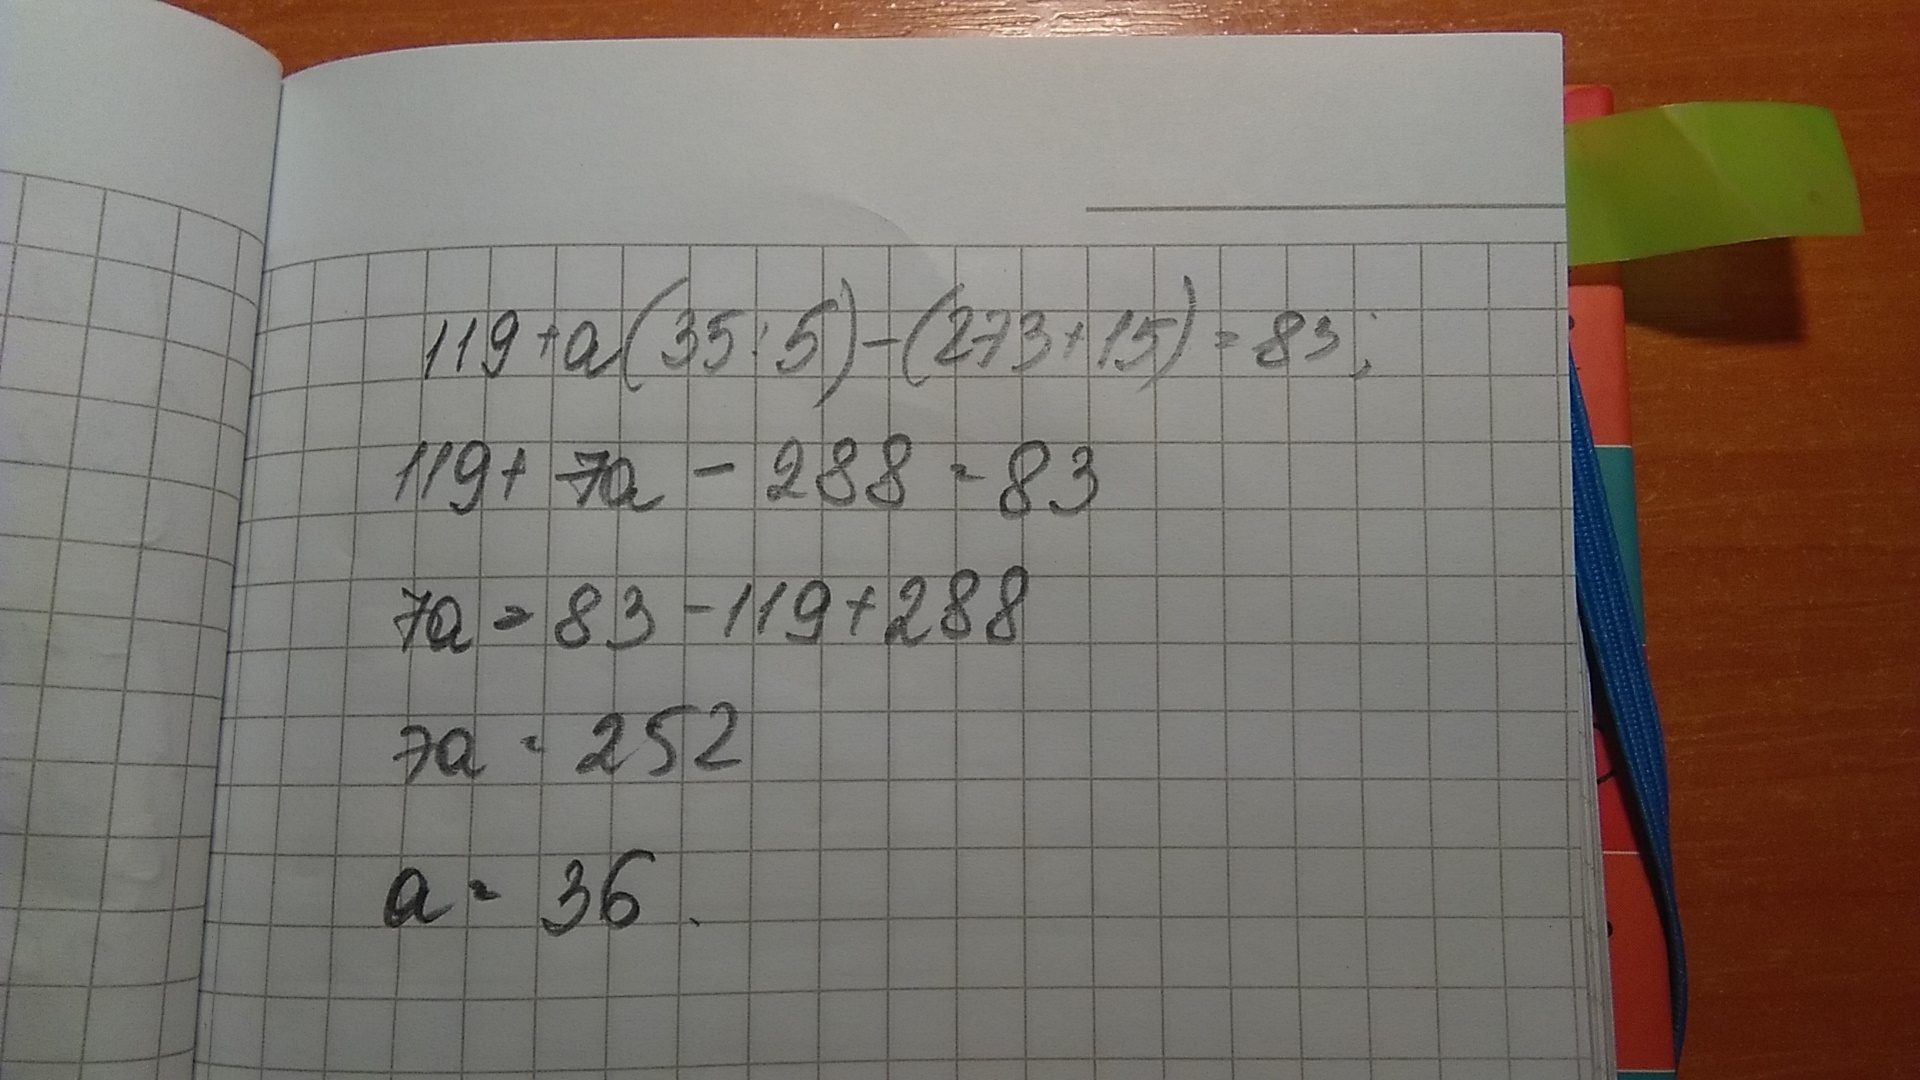 119+a(35:5)-(273+15)=83;
119+7a-288=83
7a=83-119+288
7a=252
a=36.